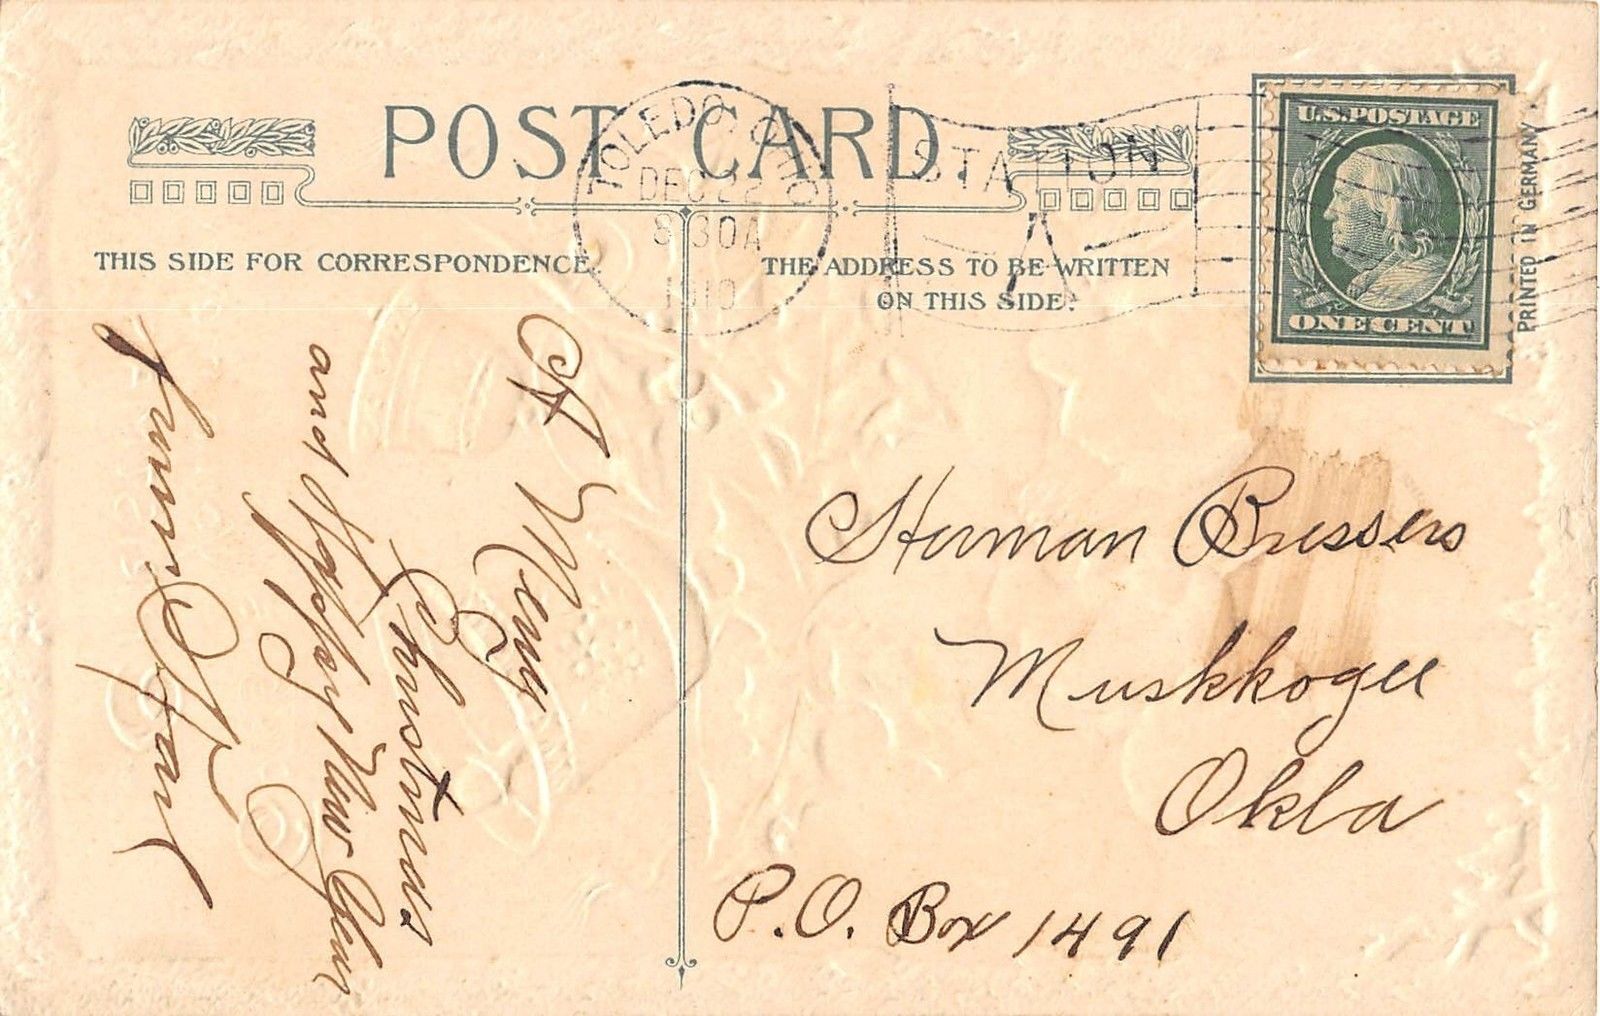 POST CARD
TOLEDO, OHIO
DEC 22
8 30A
1910
STATION
A
U.S. POSTAGE
ONE CENT
PRINTED IN GERMANY
THIS SIDE FOR CORRESPONDENCE.
THE ADDRESS TO BE WRITTEN
ON THIS SIDE.
A Merry
Christmas
and Happy New Year
from
Herman Bressers
Muskkogee
Okla
P.O. Box 1491